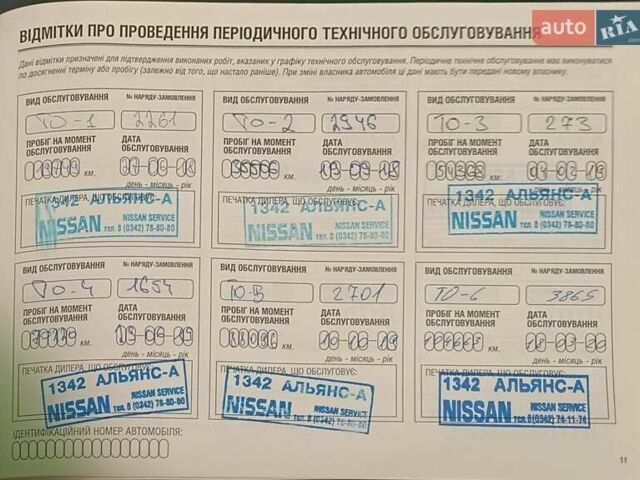 auto RIA
ВІДМІТКИ ПРО ПРОВЕДЕННЯ ПЕРІОДИЧНОГО ТЕХНІЧНОГО ОБСЛУГОВУВАННЯ
Дані відмітки призначені для підтвердження виконаних робіт, вказаних у графіку технічного обслуговування. Періодичне технічне обслуговування має виконуватися
по досягненні терміну або пробігу (залежно від того, що настало раніше). При зміні власника автомобіля ці дані мають бути передані новому власнику.
ВИД ОБСЛУГОВУВАННЯ № НАРЯДУ-ЗАМОВЛЕННЯ
ТО-1 2261
ПРОБІГ НА МОМЕНТ ОБСЛУГОВУВАННЯ ДАТА ОБСЛУГОВУВАННЯ
км.
день - місяць - рік
ПЕЧАТКА ДИЛЕРА, ЩО ОБСЛУГОВУЄ:
1342 АЛЬЯНС-А
NISSAN NISSAN SERVICE
тел. 8 (0342) 78-80-80
ВИД ОБСЛУГОВУВАННЯ № НАРЯДУ-ЗАМОВЛЕННЯ
ТО-2 2946
ПРОБІГ НА МОМЕНТ ОБСЛУГОВУВАННЯ ДАТА ОБСЛУГОВУВАННЯ
км.
день - місяць - рік
ПЕЧАТКА ДИЛЕРА, ЩО ОБСЛУГОВУЄ:
1342 АЛЬЯНС-А
NISSAN NISSAN SERVICE
тел. 8 (0342) 78-80-80
ВИД ОБСЛУГОВУВАННЯ № НАРЯДУ-ЗАМОВЛЕННЯ
ТО-3 273
ПРОБІГ НА МОМЕНТ ОБСЛУГОВУВАННЯ ДАТА ОБСЛУГОВУВАННЯ
км.
день - місяць - рік
ПЕЧАТКА ДИЛЕРА, ЩО ОБСЛУГОВУЄ:
1342 АЛЬЯНС-А
NISSAN NISSAN SERVICE
тел. 8 (0342) 78-80-80
ВИД ОБСЛУГОВУВАННЯ № НАРЯДУ-ЗАМОВЛЕННЯ
ТО-4 1654
ПРОБІГ НА МОМЕНТ ОБСЛУГОВУВАННЯ ДАТА ОБСЛУГОВУВАННЯ
км.
день - місяць - рік
ПЕЧАТКА ДИЛЕРА, ЩО ОБСЛУГОВУЄ:
1342 АЛЬЯНС-А
NISSAN NISSAN SERVICE
тел. 8 (0342) 78-80-80
ВИД ОБСЛУГОВУВАННЯ № НАРЯДУ-ЗАМОВЛЕННЯ
2701
ПРОБІГ НА МОМЕНТ ОБСЛУГОВУВАННЯ ДАТА ОБСЛУГОВУВАННЯ
км.
день - місяць - рік
ПЕЧАТКА ДИЛЕРА, ЩО ОБСЛУГОВУЄ:
1342 АЛЬЯНС-А
NISSAN NISSAN SERVICE
тел. 8 (0342) 78-80-80
ВИД ОБСЛУГОВУВАННЯ № НАРЯДУ-ЗАМОВЛЕННЯ
ТО-6 3865
ПРОБІГ НА МОМЕНТ ОБСЛУГОВУВАННЯ ДАТА ОБСЛУГОВУВАННЯ
км.
день - місяць - рік
ПЕЧАТКА ДИЛЕРА, ЩО ОБСЛУГОВУЄ:
1342 АЛЬЯНС-А
NISSAN NISSAN SERVICE
тел. 8 (0342) 74-11-74
ІДЕНТИФІКАЦІЙНИЙ НОМЕР АВТОМОБІЛЯ:
11